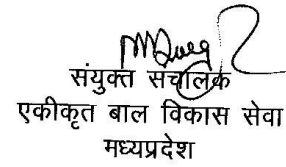 संयुक्त संचालक
एकीकृत बाल विकास सेवा
मध्यप्रदेश